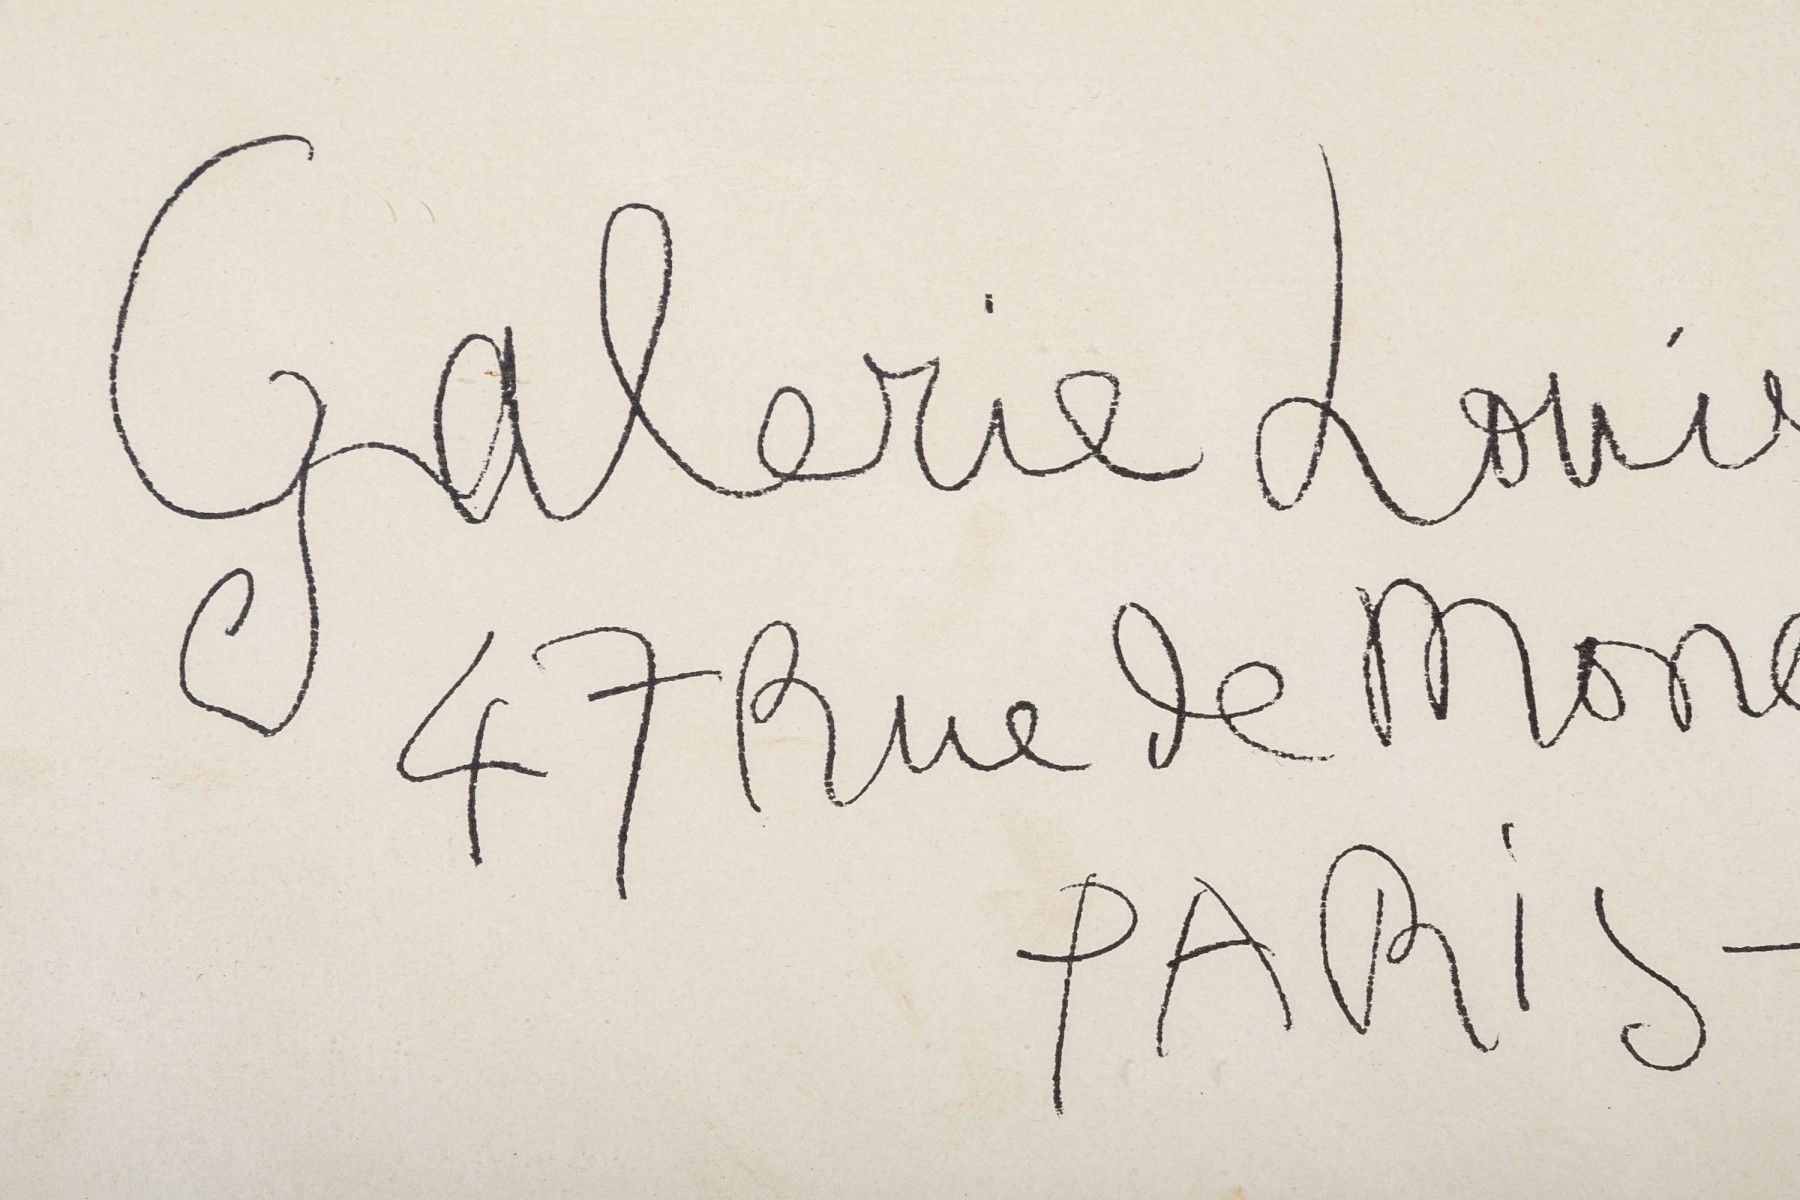 Galerie Louis
47 Rue de Monc
PARIS -